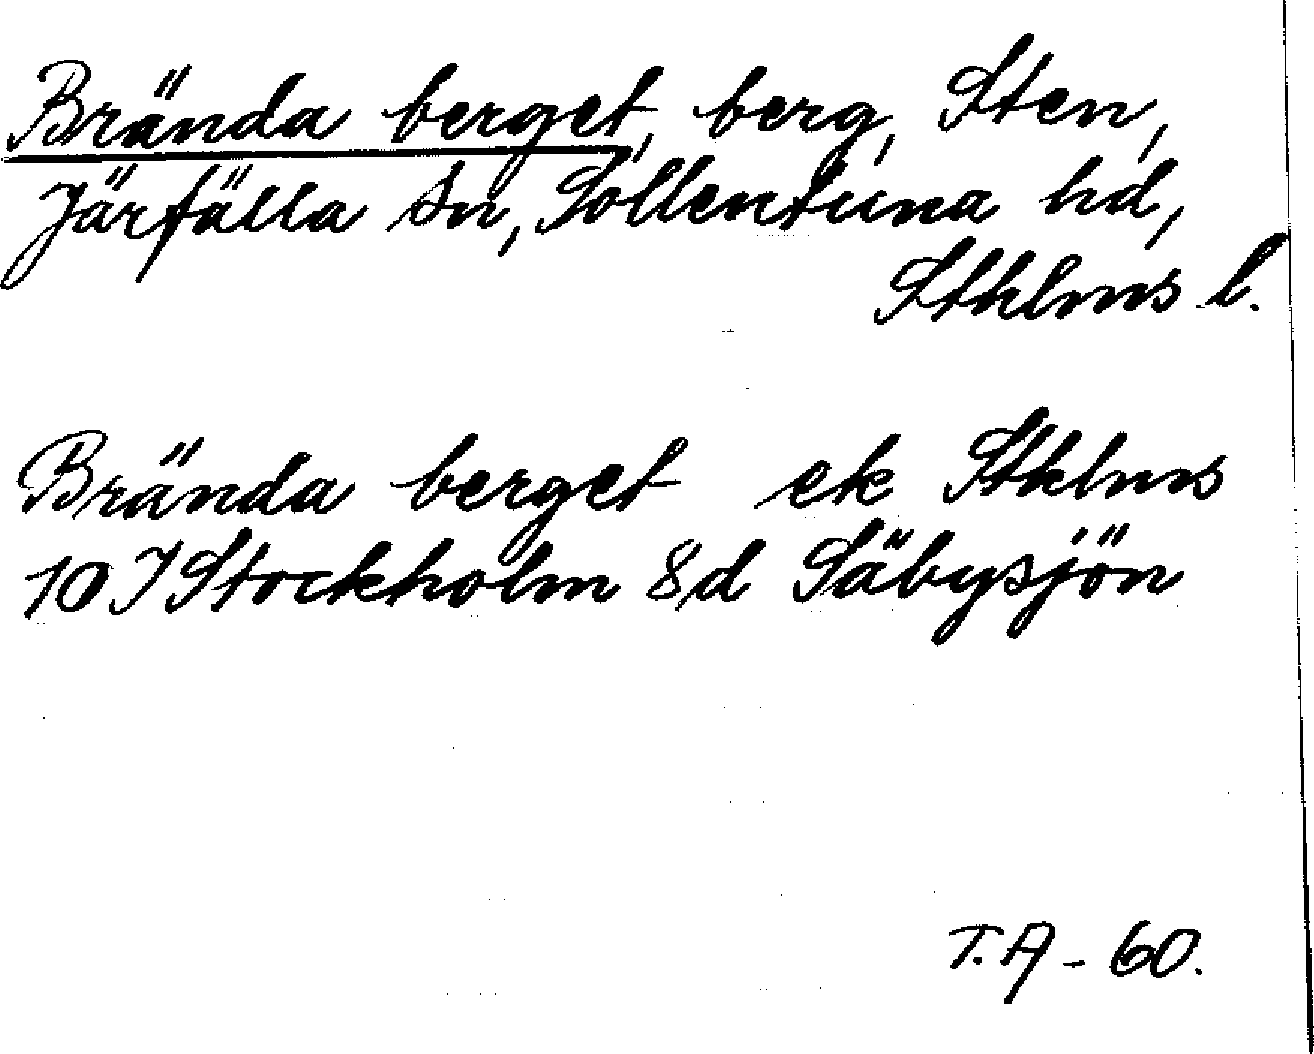 Brända berget, berg, Sten,
Järfälla sn, Sollentuna hd,
Stklms l.
Brända berget ek Stklms
10 I Stockholm 8 d Säbysjön
T.A - 60.